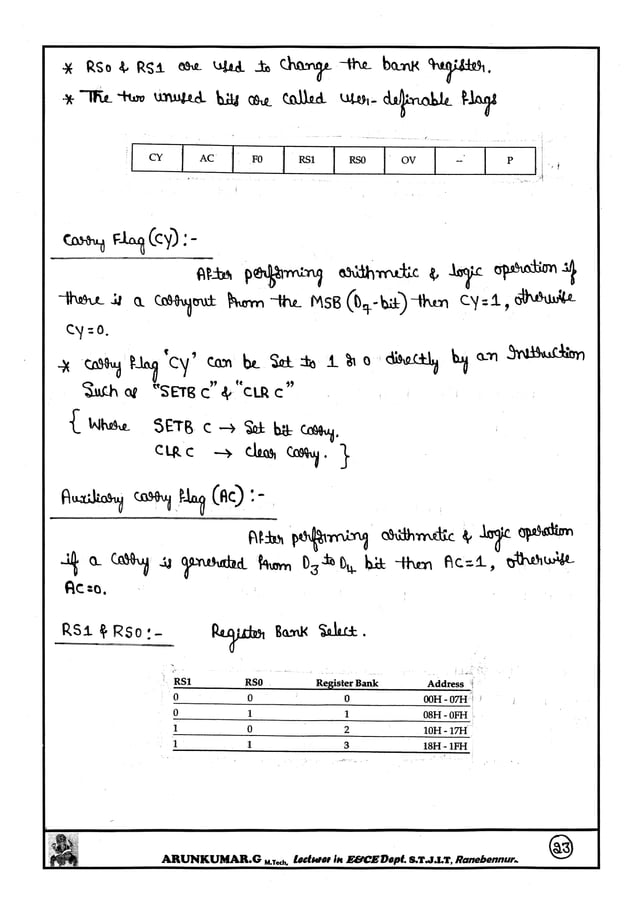 * RS0 & RS1 are used to change the bank register.
* The two unused bits are called user-definable flags
CY AC F0 RS1 RS0 OV -- P
Carry Flag (CY) :-
After performing arithmetic & logic operation if
there is a carryout from the MSB (D7-bit) then CY=1, otherwise
CY=0.
* carry flag 'CY' can be set to 1 or 0 directly by an Instruction
Such as "SETB C" & "CLR C"
{ Where SETB C → Set bit carry.
CLR C → clear carry. }
Auxiliary carry flag (AC) :-
After performing arithmetic & logic operation
if a carry is generated from D3 to D4 bit then AC=1, otherwise
AC=0.
RS1 & RS0 :- Register Bank Select.
RS1 RS0 Register Bank Address
0 0 0 00H - 07H
0 1 1 08H - 0FH
1 0 2 10H - 17H
1 1 3 18H - 1FH
23
ARUNKUMAR.G M.Tech, Lecturer in E&CE Dept. S.T.J.I.T, Ranebennur.